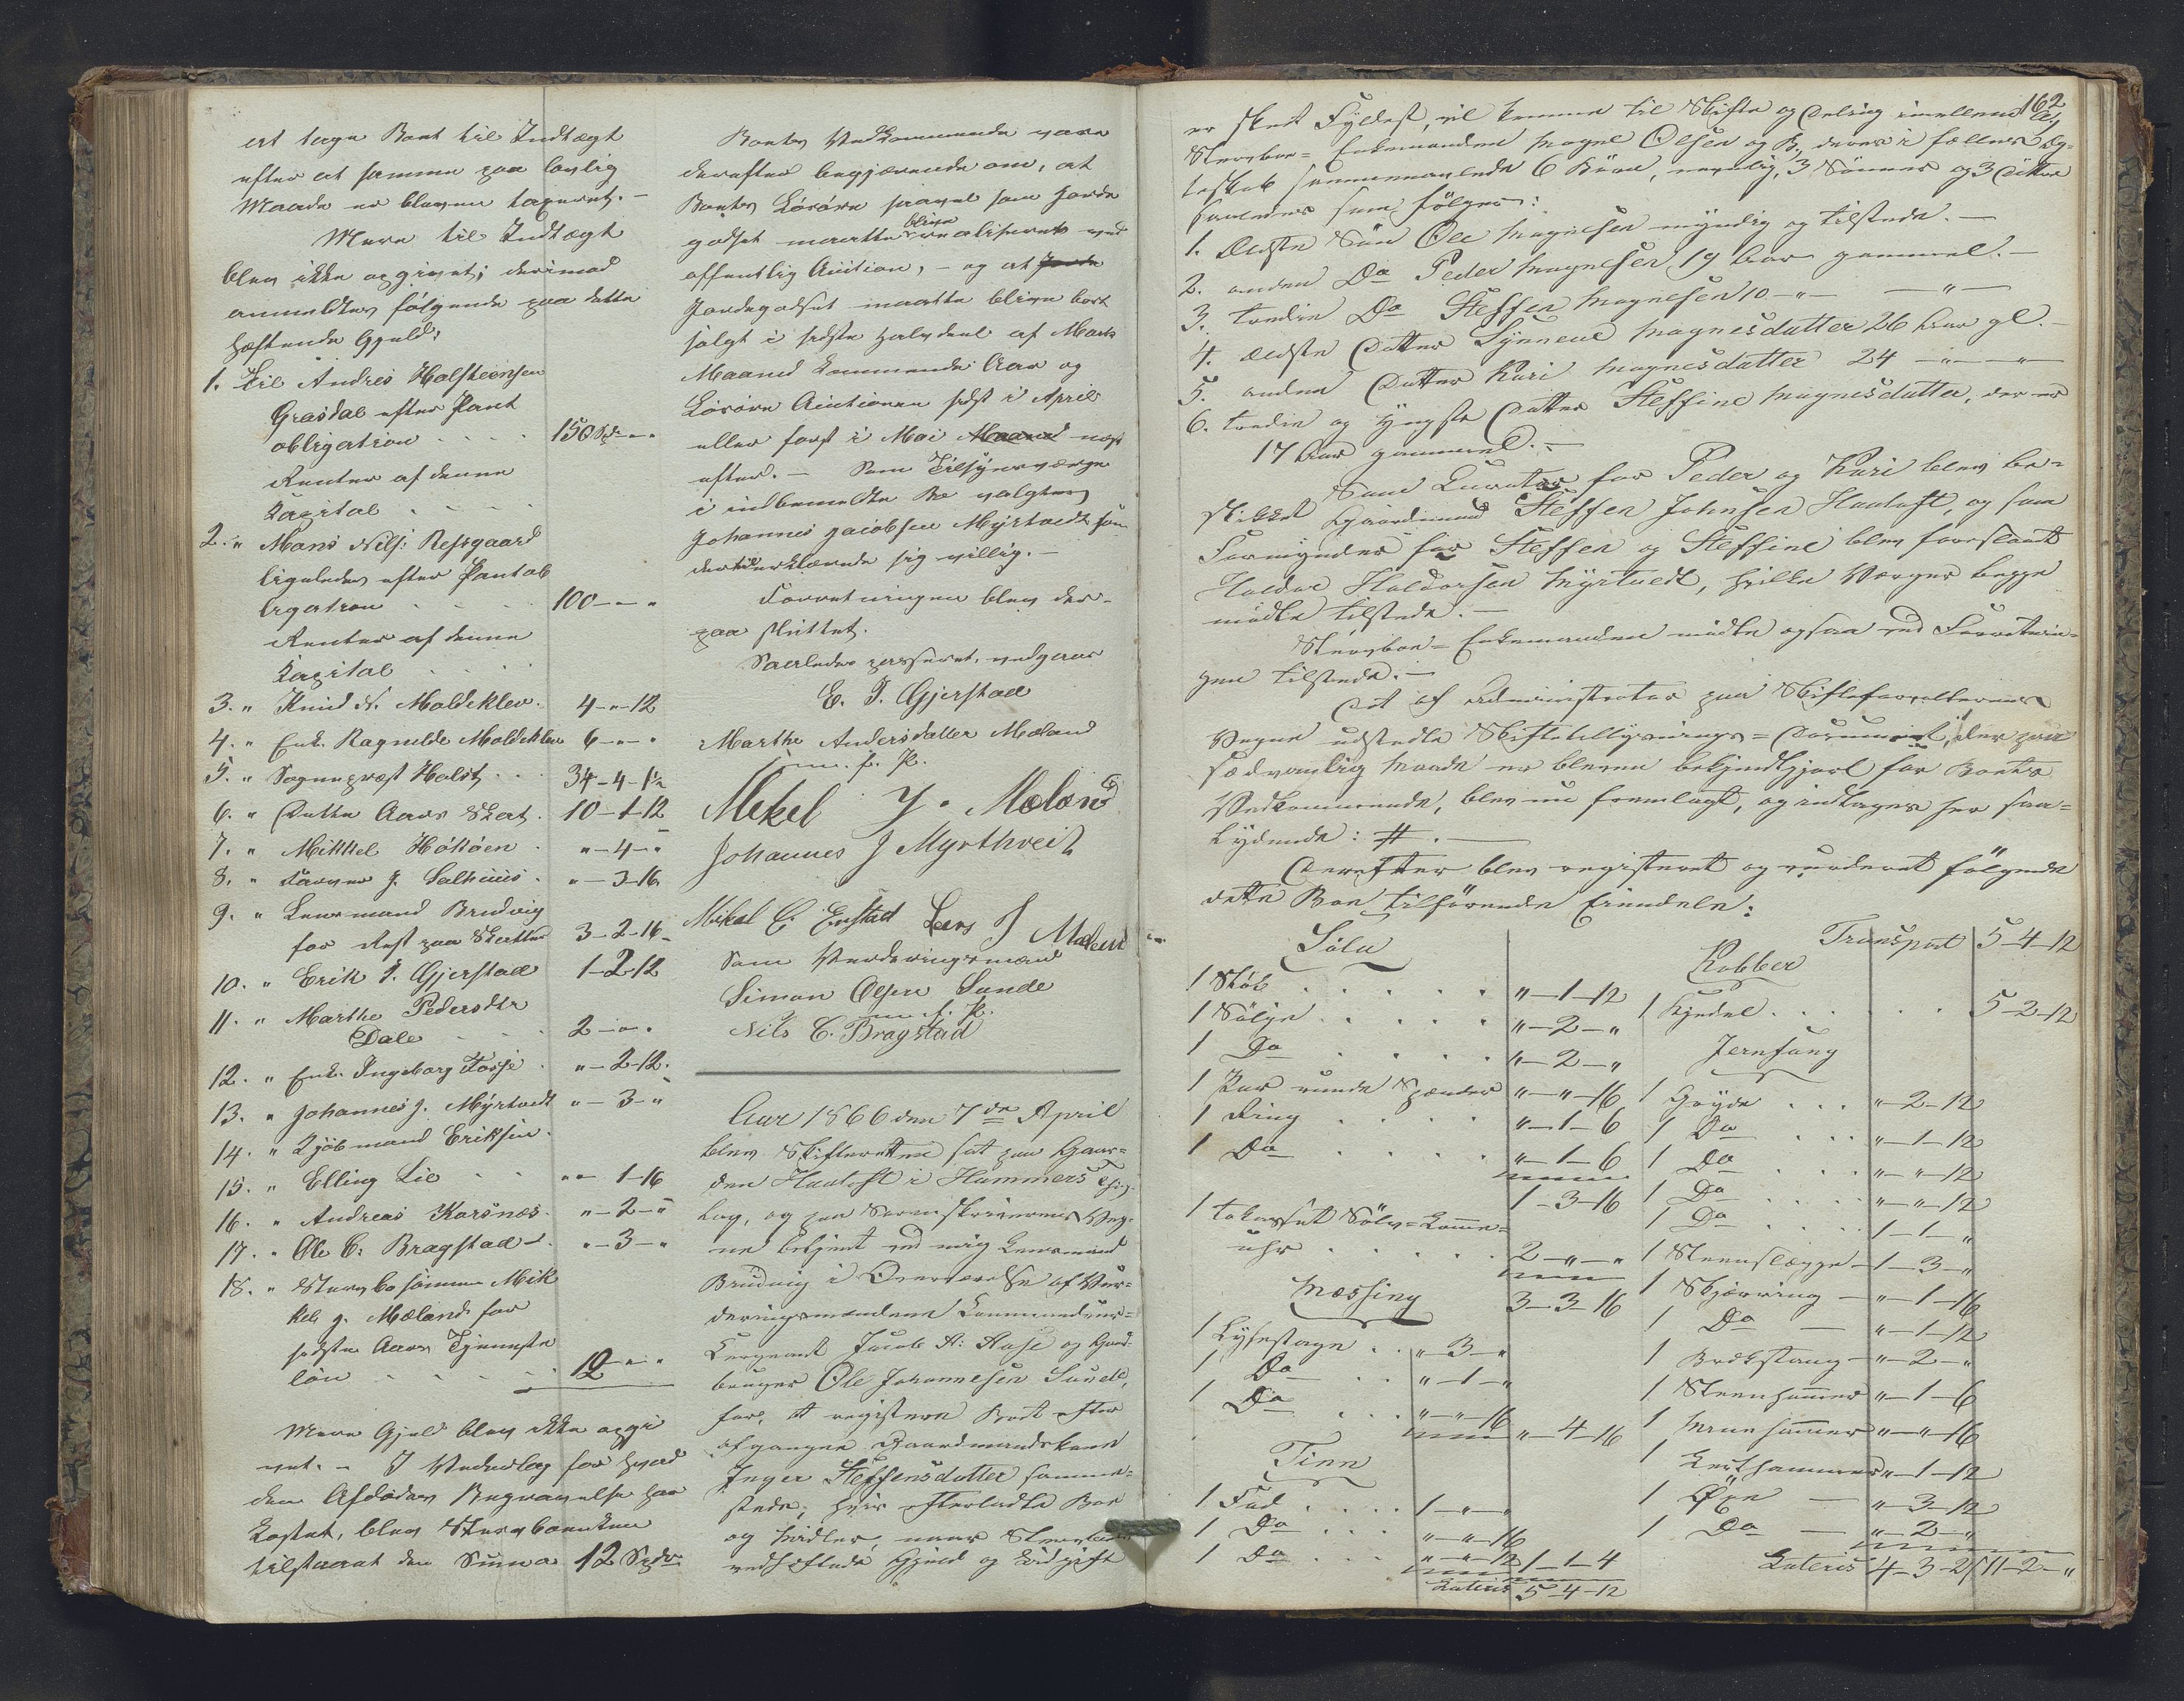 at tage Boet til Indtægt
efter at samme paa lovlig
Maade er bleven taxeret. –
Mere til Indtægt
blev ikke opgivet; derimod
anmeldtes følgende paa dette
heftende Gjeld:
1. Til Andreis Halsteensen
Grasdal efter Pant
obligation . . . . 150 Spd - " - "
Renter af denne
Kapital . . . .
2. " Mons Nils: Refsgaard
ligeledes efter Pantob
ligation . . . . 100 - " - "
Renter af denne
Kapital . . . .
3. " Knud N. Moldeklev . 4 - " - 12
4. " Enk. Ragnilde Moldeklev 6 - " - "
5. " Sognepræst Holst . . . 34 - 4 - 1½
6. " Dette Aars Skat . 10 - 1 - 12
7. " Mikkel Hököen . " - 4 - "
8. " Farver J. Salhuus . " - 3 - 16
9. " Lensmand Brudvig
for Rest paa Skatten 3 - 2 - 16
10. " Erik I. Gjerstad 1 - 2 - 12
11. " Marthe Pedersdtr
Dale . . . 2 - " - "
12. " Enk. Ingeborg Fosse . " - 2 - 12.
13. " Johannes J. Myrtvedt " - 3 - "
14. " Kjöbmand Eriksen .
15. " Elling Lie . . " " 1 - 16
16. " Andreas Korsnæs . " - 2 - "
17. " Ole C. Bragstad . " - 3 - "
18. " Stervbosönnen Mik
kel J. Mæland for
sidste Aars Tjeneste
lön . . . . . 12 - " - "
Mere Gjeld blev ikke opgi
vet. – I Vederlag for hvad
den Afdödes Begravelse har
kostet, blev Stervboenken
tilstaaet den Summa 12 Spdr
Boets Vedkommende vare
derefter begjærende om, at
Boets Lösöre saavel som Jorde
godset maatte blive realiseret ved
offentlig Auction, – og at
Jordegodset maatte blive bort
solgt i sidste Halvdeel af Marts
Maaned kommende Aar og
Lösöre Auctionen sidst i April
eller först i Mai Maaned næst
efter. – Som Tilsynsværge
i indbemeldte Bo valgtes
Johannes Jacobsen Myrtvedt som
dertil erklærede sig villig. –
Forretningen blev der-
paa sluttet.
Saaledes passeret, vedgaar
E. I. Gjerstad
Marthe Andersdatter Mæland
m. f. P.
Mekel J. Mæland
Johannes J Myrthveit
Mikal C. Gerstad Lars J Mæland
Som Vurderingsmænd
Simon Olsen Sunde
m. f. P.
Nils C. Bragstad
Aar 1866 den 7de April
blev Skifteretten sat paa Gaar-
den Hautoft i Hammers Thing-
lag, og paa Sorenskriverens Veg-
ne betjent ved mig Lensmand
Brudvig i Overværelse af Vur-
deringsmændene Commandeur-
Sergeant Jacob A: Ase og Gaard-
bruger Ole Johannesen Sunde,
for, at registrere Boet efter
afgangne Gaardmandskone
Inger Steffensdatter samme-
steds, hvis efterladte Bo
og Midler, naar Stervboets
vedheftede Gjeld og Udgift
162
er skeet Fyldest, vil komme til Skifte og Deling imellem
Stervboe- Enkemanden Magne Olsen og B., deres i fælles Æg-
teskab sammenavlede 6 Börn, nemlig, 3 Sönner og 3 Döttre
saaledes som fölger:
1. Ældste Sön Ole Magnesen myndig og tilstede. –
2. anden Do Peder Magnesen 19 Aar gammel. –
3. tredie Do Steffen Magnesen 10 - " - - " -
4. Ældste Datter Synneve Magnesdatter 26 Aar gl. –
5. anden Datter Kari Magnesdatter 24 - " - "
6. tredie og yngste Datter Steffine Magnesdatter, der er
17 Aar gammel. –
Som Curator for Peder og Kari blev be-
skikket Gaardmand Steffen Johnsen Hautoft, og som
Formynder for Steffen og Steffine blev foreslaaet
Haldor Haldorsen Myrtvedt, hvilke Værger begge
mödte tilstede. –
Stervboe- Enkemanden mödte ogsaa ved Forretnin-
gen tilstede. –
Det af Administrator paa Skifteforvalterens
Vegne udstedte Skiftetillysnings- Document, der paa
sædvanlig Maade er bleven bekjendtgjort for Boets
Vedkommende, blev nu fremlagt, og indtages her saa-
lydende: #. –
Derefter blev registreret og vurderet fölgende
dette Boe tilhörende Eiendele:
Sölv
1 Stöb . . . . . " - 1 - 12
1 Sölje . . . . . " - 2 - "
1 Do . . . . " - 2 - "
1 Par runde Spænder " - " - 16
1 Ring . . . . " - 1 - 6
1 Do . . . . " - 1 - 6
1 - 3 - 16
1 tokasset Sölv- Lomme-
uhr . . . . . 2 - " - "
3 - 3 - 16
Messing
1 Lysestage . . " - 3 - "
1 Do . . " - 1 - "
1 Do . . . " - " - 16
" - 4 - 16
Tinn
1 Fad . . . . 1 - " - "
1 Do . . . " - " - 16
1 Do . . . " - " - 12 1 - 1 - 4
Lateris 5 - 4 - 12
Transport 5 - 4 - 12
Kobber
1 Kjedel . . . . . . 5 - 2 - 12
Jernfang
1 Gryde . . . " - 2 - 12
1 Do . . . " - 1 - 12
1 Do . . . " - " - 12
1 Do . . . . " - " - 12
1 Do . . . . 1 - 1 - "
1 Steenslægge - 1 - 3 - "
1 Skjæring - " - 1 - 16
1 Do - " - 1 - 12
1 Brækstang - " - 2 - "
1 Steenhammer " - 1 - 6
1 hammer " - " - 16
1 hammer " - 1 - 12
1 Öxe - " - 3 - 12
1 Do - " - 2 - "
Lateris 4 - 3 - 2 11 - 2 - "